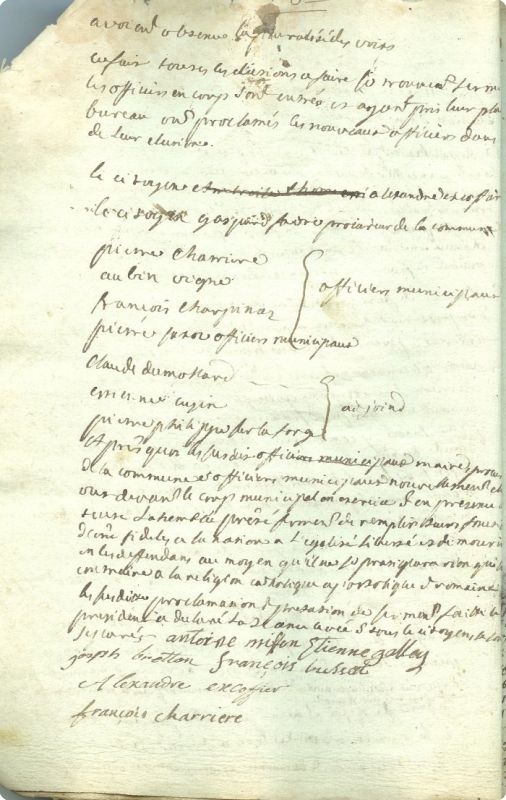 avoient obtenu la pluralité des voix
ce fait toutes les elusions a faire se trouvant termi
les officiers en corps sont entrés et ayant pris leur pla
bureau ont proclamés les nouveaux officiers dans
de leur elusions.
le citoyens alexandre excoffier
le citoyen gaspard favre procureur de la commune
pierre charriere
aubin vigne
françois charpinaz
pierre officiers municipaux
officiers municipaux
claude dumollard
cugin
pierre philippe sur la forge
adjoind
Après quoi les susdits officiers municipaux maires, procu
de la commune et officiers municipaux nouvellement el
ont devant le corps municipal en exercice et en presence
assemblé pretté serment de remplir leurs
d'etre fideles a la nation a l'egalité liberté et de mourir
en les deffendans au moyen qu'il ne se
contraire a la religion catholique apostolique & romaine
les susdites proclamation & prestation de serment faitte le
president a declaré la seance levée & sous le citoyens
secretés antoine Etienne
joseph bretton françois
Alexandre excofier
françois charriere